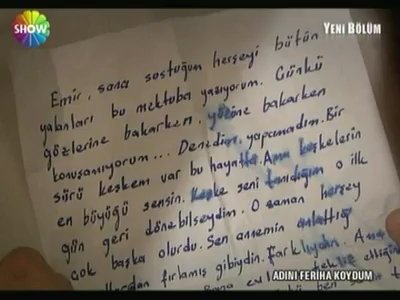 SHOW
YENİ BÖLÜM
Emir, sana sustuğum herşeyi bütün
yalanları bu mektuba yazıyorum. Çünkü
gözlerine bakarken, yüzüne bakarken
konuşamıyorum... Denedim, yapamadım. Bir
sürü keşkem var bu hayatta. Ama keşkelerin
en büyüğü sensin. Keşke seni tanıdığım o ilk
gün geri dönebilseydim. O zaman herşey
çok başka olurdu. Sen annemin anlattığı
fırlamış gibiydin. Farklıydın.
ADINI FERİHA KOYDUM